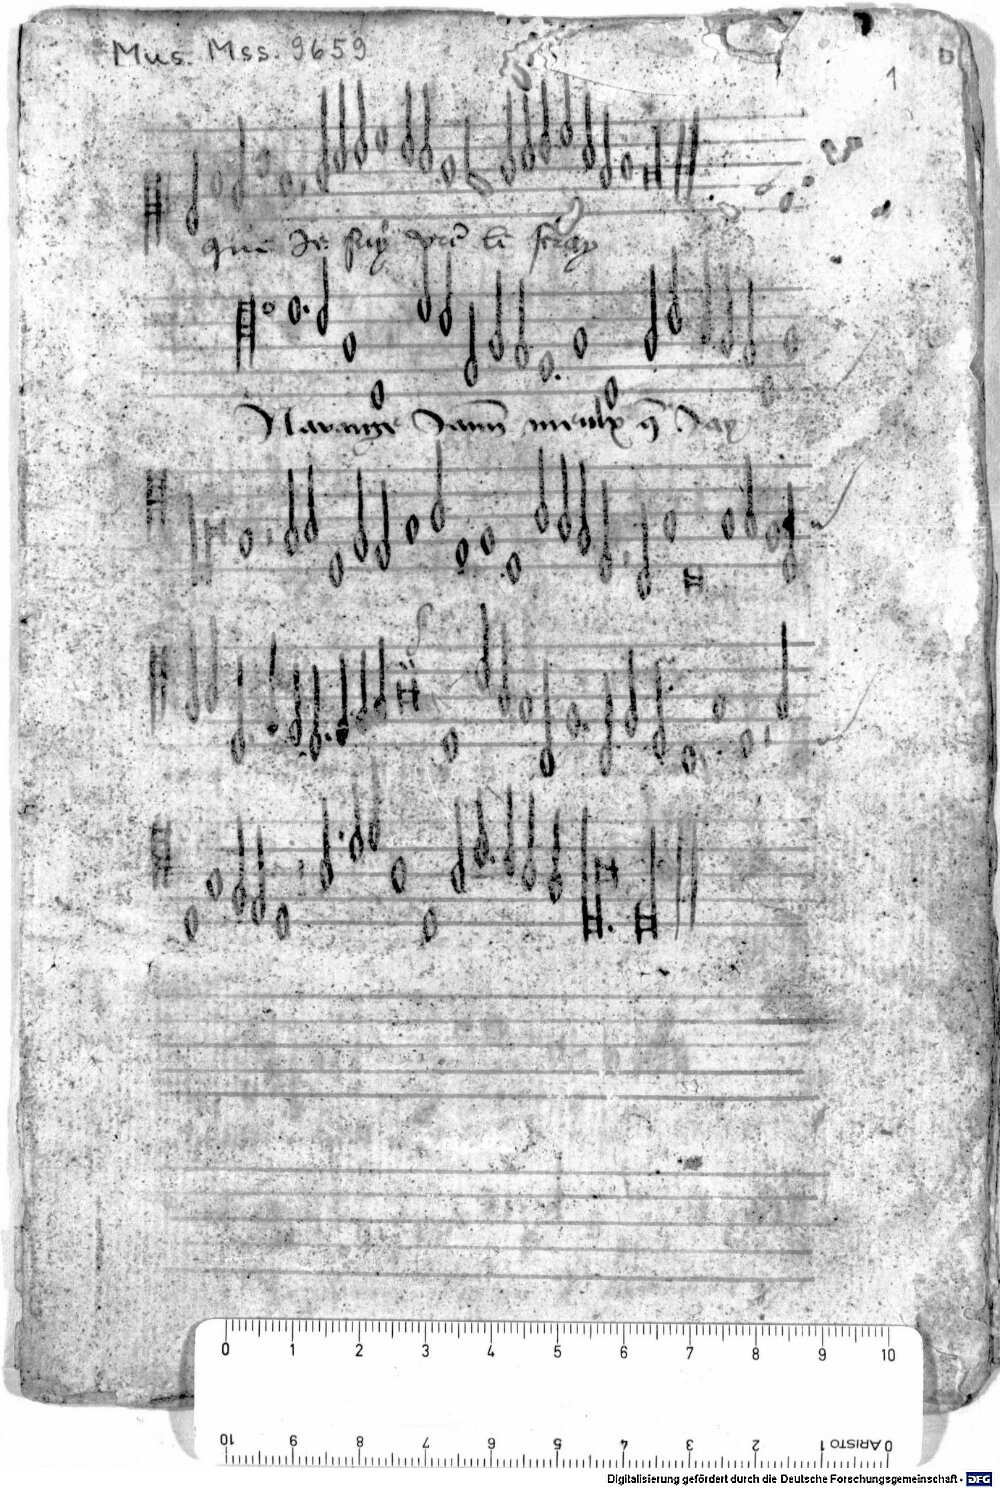 Mus. Mss. 9659
1
que Je suy
Navange Jamais mieulx q Jay
0 1 2 3 4 5 6 7 8 9 10
0 ARISTO 1 2 3 4 5 6 7 8 9 10
Digitalisierung gefördert durch die Deutsche Forschungsgemeinschaft - DFG